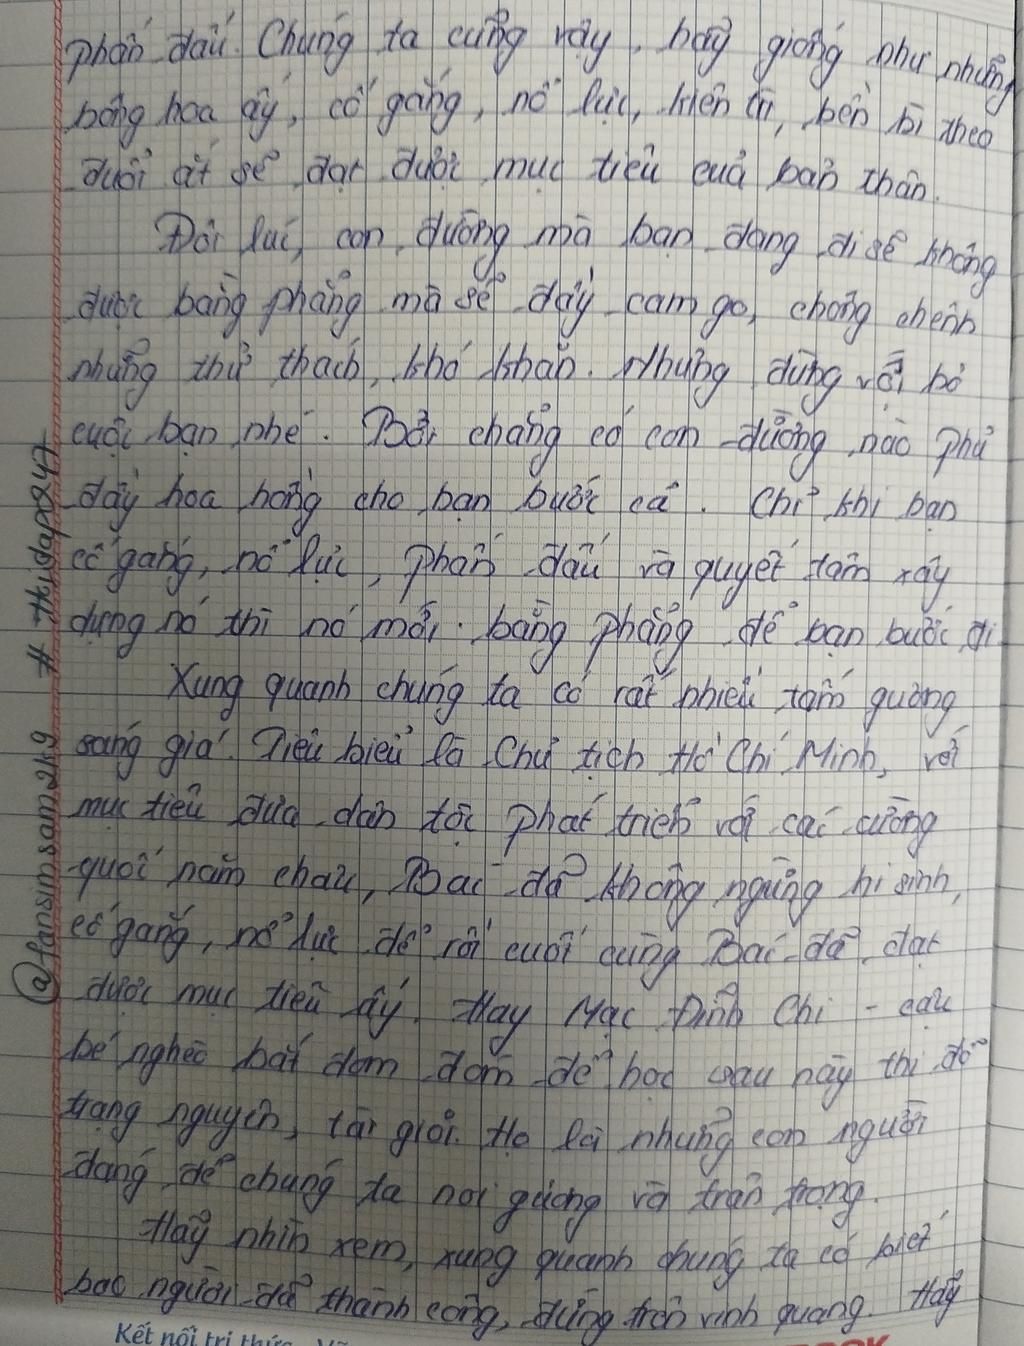 phấn đấu. Chúng ta cũng vậy, hãy giống như những
bông hoa ấy, cố gắng, nỗ lực, kiên trì, bền bỉ theo
đuổi ắt sẽ đạt được mục tiêu của bản thân.
Đôi lúc, con đường mà bạn đang đi sẽ không
được bằng phẳng mà sẽ đầy cam go, chông chênh
những thử thách, khó khăn. Nhưng đừng vội bỏ
cuộc bạn nhé. Bởi chẳng có con đường nào phủ
đầy hoa hồng cho bạn bước cả. Chỉ khi bạn
cố gắng, nỗ lực, phấn đấu và quyết tâm xây
dựng nó thì nó mới bằng phẳng để bạn bước đi.
Xung quanh chúng ta có rất nhiều tấm gương
sáng giá. Tiêu biểu là Chủ tịch Hồ Chí Minh, với
mục tiêu đưa dân tộc phát triển với các cường
quốc năm châu, Bác đã không ngừng hi sinh,
cố gắng, nỗ lực để rồi cuối cùng Bác đã đạt
được mục tiêu ấy. Hay Mạc Đĩnh Chi - cậu
bé nghèo bắt đom đóm để học sau này thi đỗ
trạng nguyên, tài giỏi. Họ là những con người
đáng để chúng ta noi gương và trân trọng.
Hãy nhìn xem, xung quanh chúng ta có biết
bao người đã thành công, đứng trên vinh quang. Hãy
@fansimsam2k9 # thudapa247
Kết nối tri thức